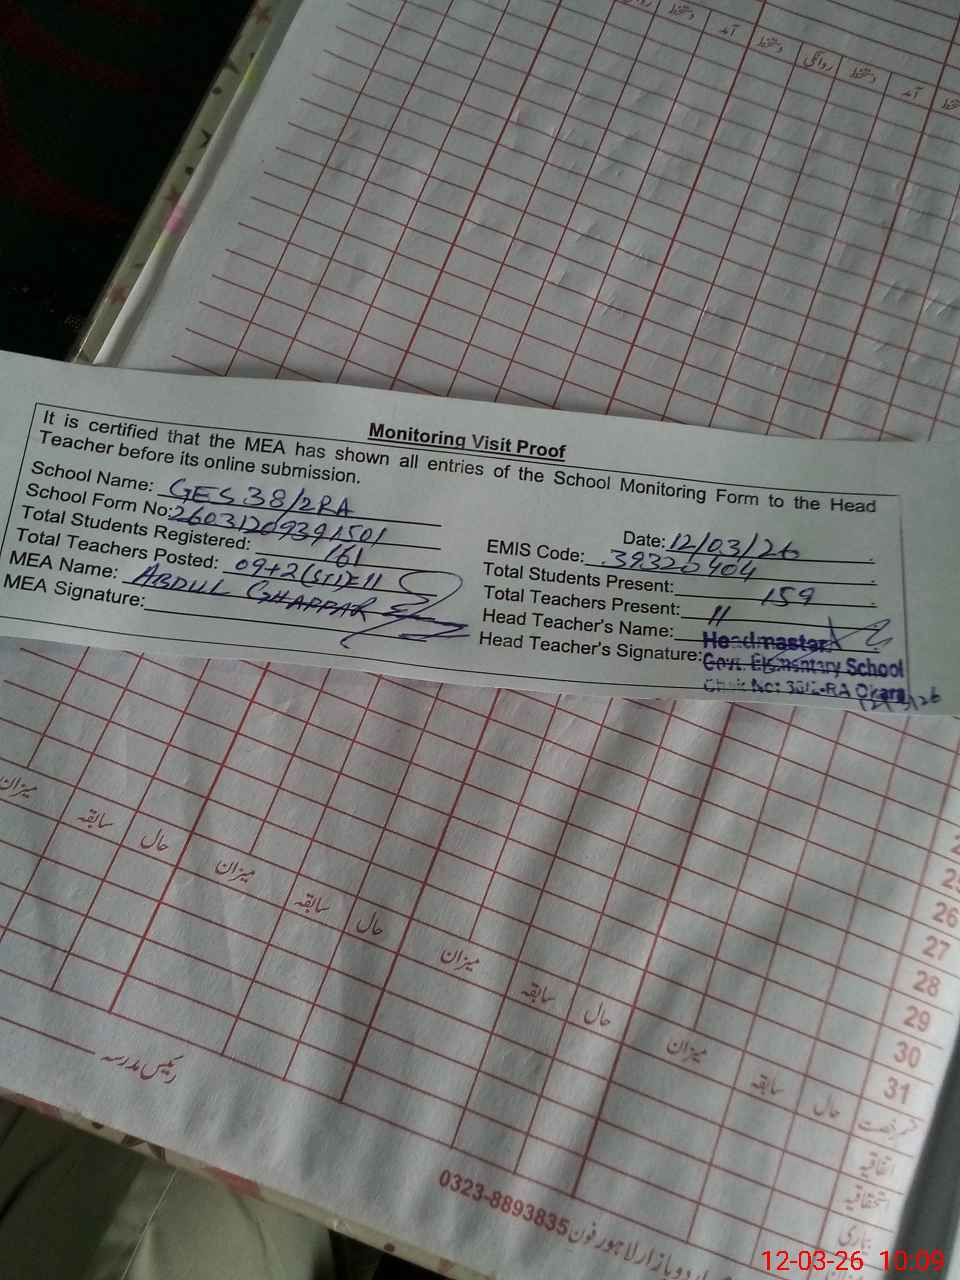 دستخط
آمد
دستخط
روانگی
دستخط
آمد
Monitoring Visit Proof
It is certified that the MEA has shown all entries of the School Monitoring Form to the Head
Teacher before its online submission.
School Name: GES 38/2RA
School Form No: 26031209391501
Date: 12/03/26
Total Students Registered: 161
EMIS Code: 39320404
Total Teachers Posted: 09+2(STI)=11
Total Students Present: 159
MEA Name: ABDUL GHAFFAR
Total Teachers Present: 11
MEA Signature:
Head Teacher's Name:
Head Teacher's Signature:
Headmaster
Govt. Elementary School
Chak No: 38/2-RA Okara
میزان
سابقہ
حال
میزان
سابقہ
حال
میزان
سابقہ
حال
میزان
سابقہ
حال
25
26
27
28
29
30
31
اتفاقیہ
استحقاقیہ
بیماری
رئیس مدرسہ
اردو بازار لاہور فون 0323-8893835
12-03-26 10:09